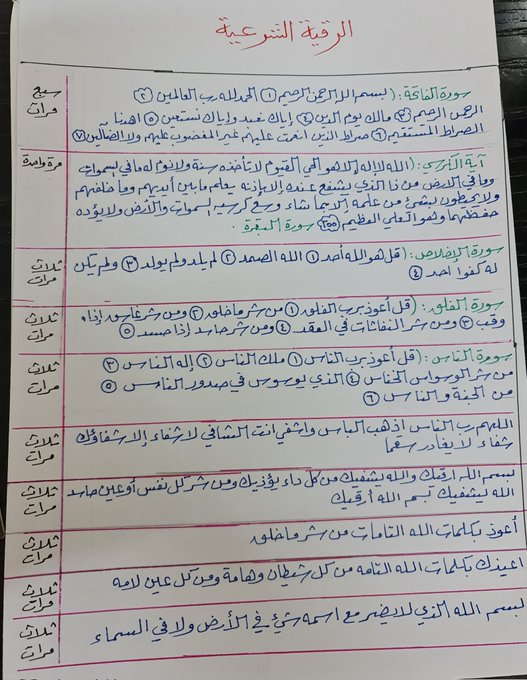 الرقية الشرعية
سبع
مرات
سورة الفاتحة: (بسم الله الرحمن الرحيم ١ الحمد لله رب العالمين ٢
الرحمن الرحيم ٣ مالك يوم الدين ٤ إياك نعبد وإياك نستعين ٥ اهدنا
الصراط المستقيم ٦ صراط الذين انعمت عليهم غير المغضوب عليهم ولا الضالين ٧
مرة واحدة
آية الكرسي: (الله لا إله إلا هو الحي القيوم لا تأخذه سنة ولا نوم له ما في السموات
وما في الارض من ذا الذي يشفع عنده إلا بإذنه يعلم ما بين أيديهم وما خلفهم
ولا يحيطون بشئ من علمه إلا بما شاء وسع كرسيه السموات والأرض ولا يؤده
حفظهما وهو العلي العظيم ٢٥٥ سورة البقرة.
ثلاث
مرات
سورة الإخلاص: (قل هو الله أحد ١ الله الصمد ٢ لم يلد ولم يولد ٣ ولم يكن
له كفوا احد ٤
ثلاث
مرات
سورة الفلق: (قل أعوذ برب الفلق ١ من شر ما خلق ٢ ومن شر غاسق إذا
وقب ٣ ومن شر النفاثات في العقد ٤ ومن شر حاسد إذا حسد ٥
ثلاث
مرات
سورة الناس: (قل أعوذ برب الناس ١ ملك الناس ٢ إله الناس ٣
من شر الوسواس الخناس ٤ الذي يوسوس في صدور الناس ٥
من الجنة والناس ٦
ثلاث
مرات
اللهم رب الناس اذهب الباس واشفي انت الشافي لا شفاء إلا شفاؤك
شفاء لا يغادر سقما
ثلاث
مرات
بسم الله ارقيك والله يشفيك من كل داء يؤذيك ومن شر كل نفس أو عين حاسد
الله يشفيك بسم الله أرقيك
ثلاث
مرات
أعوذ بكلمات الله التامات من شر ما خلق
ثلاث
مرات
اعيذك بكلمات الله التامه من كل شيطان وهامة ومن كل عين لامه
ثلاث
مرات
بسم الله الذي لا يضر مع اسمه شئ في الأرض ولا في السماء